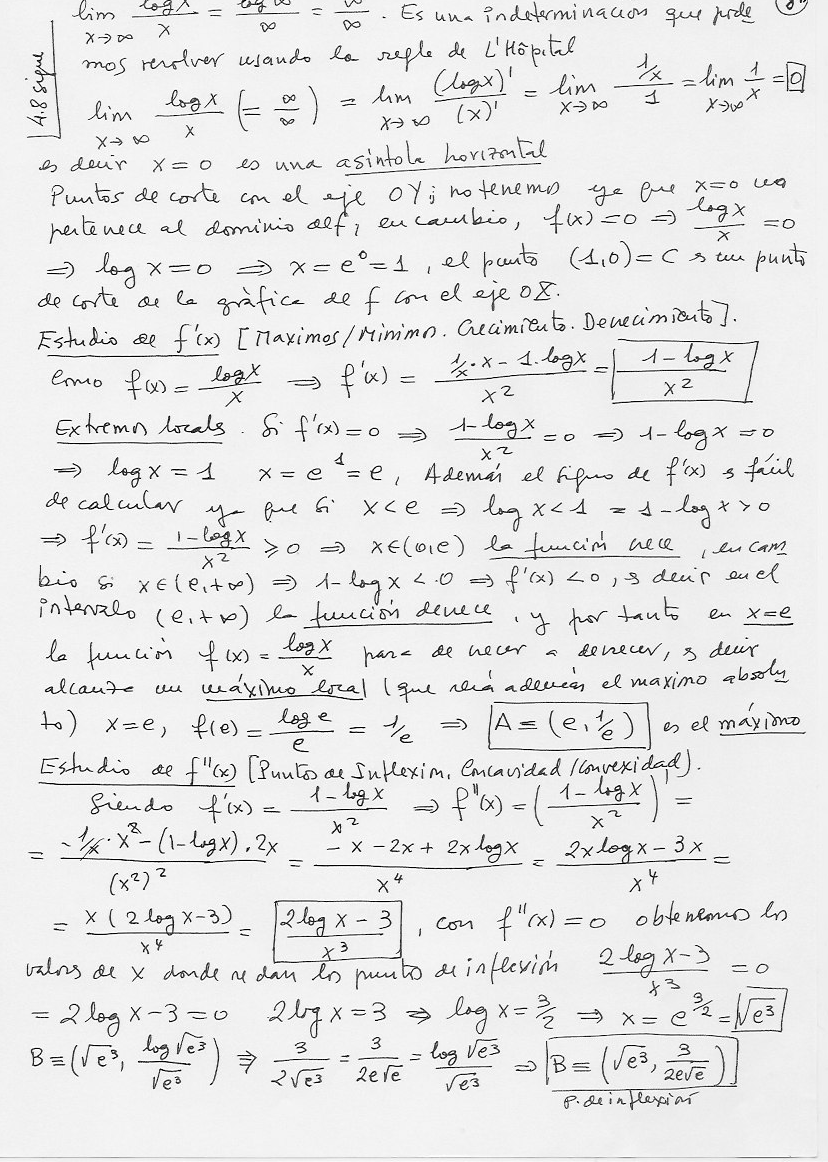 lim x→∞ log x / x = log ∞ / ∞ = ∞/∞ . Es una indeterminacion que pode
mos resolver usando la regle de L'Hôpital
4.8 sigue
lim x→∞ log x / x (= ∞/∞) = lim x→∞ (log x)' / (x)' = lim x→∞ 1/x / 1 = lim x→∞ 1/x = 0
es decir x = 0 es una asintota horizontal
Puntos de corte con el eje OY; no tenemos ya que x=0 no
pertenece al dominio de f, en cambio, f(x) = 0 ⇒ log x / x = 0
⇒ log x = 0 ⇒ x = e⁰ = 1 , el punto (1,0) = C es un punto
de corte de la gràfica de f con el eje OX.
Estudio de f'(x) [Maximos/Minimo. Crecimiento. Decrecimiento].
Como f(x) = log x / x ⇒ f'(x) = (1/x · x − 1·log x) / x² = (1 − log x) / x²
Extremos locales. Si f'(x) = 0 ⇒ (1 − log x) / x² = 0 ⇒ 1 − log x = 0
⇒ log x = 1 x = e¹ = e, Además el signo de f'(x) es fácil
de calcular ya que si x < e ⇒ log x < 1 = 1 − log x > 0
⇒ f'(x) = (1 − log x) / x² ⩾ 0 ⇒ x∈(0,e) la función crece , en cam
bio si x∈(e,+∞) ⇒ 1 − log x < 0 ⇒ f'(x) < 0, es decir en el
intervalo (e,+∞) la función decrece , y por tanto en x=e
la función f(x) = log x / x pasa de crecer a decrecer, es decir
alcanza un máximo local (que será además el maximo absolu
to) x=e, f(e) = log e / e = 1/e ⇒ A ≡ (e, 1/e) es el máximo
Estudio de f''(x) [Puntos de Inflexion, Concavidad/Convexidad).
Siendo f'(x) = (1 − log x) / x² ⇒ f''(x) = ((1 − log x) / x²)' =
= (−1/x · x² − (1 − log x) . 2x) / (x²)² = (−x − 2x + 2x log x) / x⁴ = (2x log x − 3x) / x⁴ =
= x (2 log x − 3) / x⁴ = (2 log x − 3) / x³ , con f''(x) = 0 obtenemos los
valores de x donde se dan los punto de inflexión (2 log x − 3) / x³ = 0
= 2 log x − 3 = 0 2 log x = 3 ⇒ log x = 3/2 ⇒ x = e^(3/2) = √e³
B ≡ (√e³, log √e³ / √e³) ⇒ 3 / 2√e³ = 3 / 2e√e = log √e³ / √e³ ⇒ B ≡ (√e³, 3 / 2e√e)
p. de inflexión